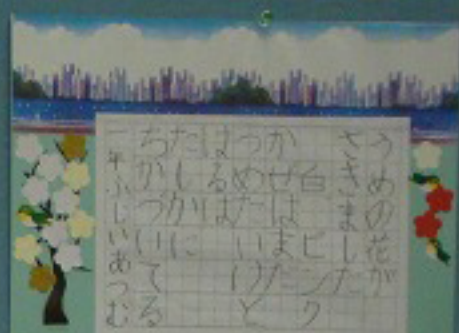 うめの花が
さきました
白 ピンク
かぜはまだ
つめたいけど
はるは
たしかに
ちかづいてる
一年ふじいあつむ